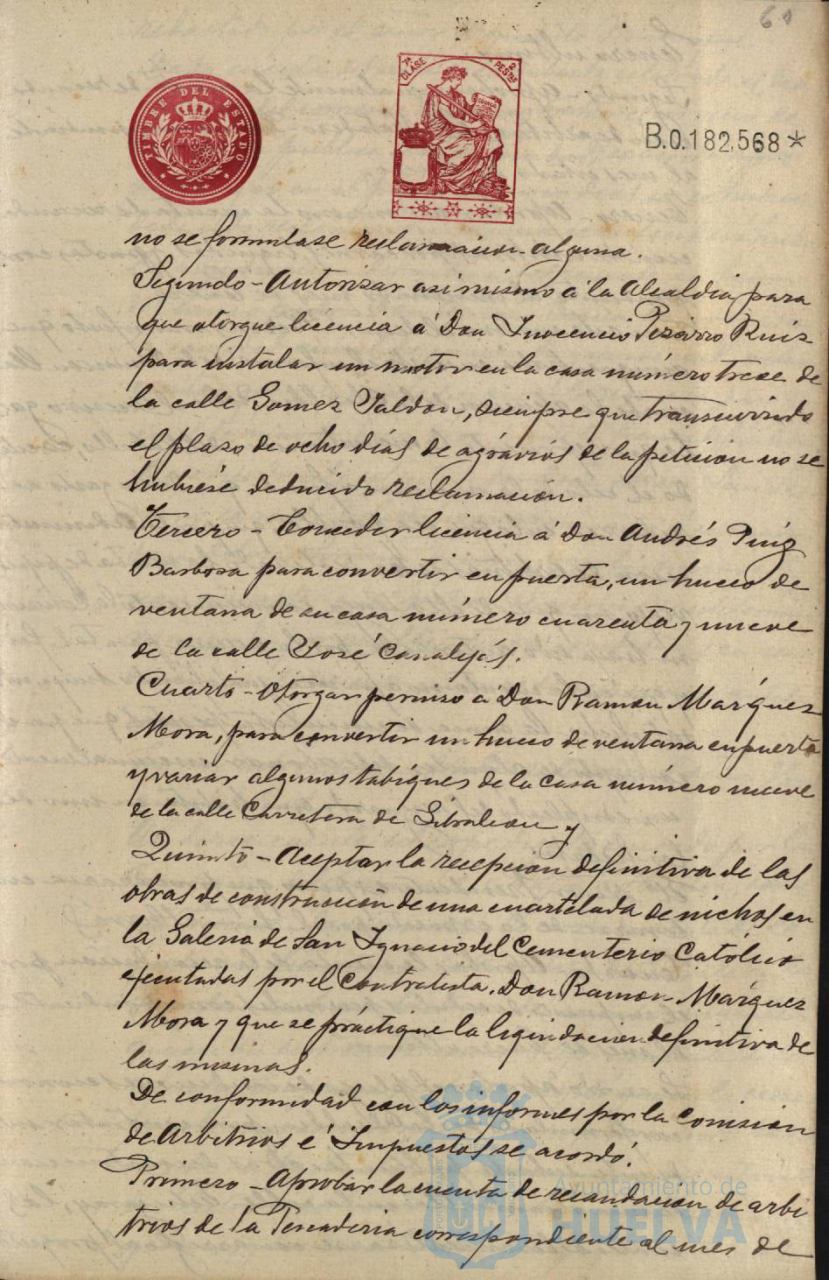 61
TIMBRE DEL ESTADO
7ª CLASE
2 PESTAS
B.0.182.568*
no se formulase reclamacion alguna.
Segundo - Autorizar asi mismo á la Alcaldía para
que otorgue licencia á Don Inocencio Pizarro Ruiz
para instalar un motor en la casa número trece de
la calle Gomez Jaldon, siempre que transcurrido
el plazo de ocho días de agravios de la peticion no se
hubiése deducido reclamación.
Tercero - Conceder licencia á Don Andrés Puig
Barbosa para convertir en puerta, un hueco de
ventana de su casa número cuarenta y nueve
de la calle José Canalejás.
Cuarto - Otorgar permiso á Don Ramon Márquez
Mora, para convertir un hueco de ventana en puerta
y variar algunos tabiques de la casa número nueve
de la calle Carretera de Gibraleon y
Quinto - Aceptar la recepcion definitiva de las
obras de construcción de una cuartelada de nichos en
la Galeria de San Ignacio del Cementerio Católico
ejecutadas por el Contratista. Don Ramon Márquez
Mora y que se práctique la liquidacion definitiva de
las mismas.
De conformidad con los informes por la Comision
de Arbitrios é Impuestos se acordó.
Primero - Aprobar la cuenta de recaudacion de arbi
trios de la Pescaderia correspondiente al mes de
Ayuntamiento de
HUELVA